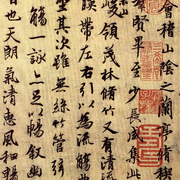 會稽山陰之蘭亭脩稧
群賢畢至少長咸集
崇山峻領茂林脩竹
暎帶左右引以為流觴
坐其次雖無絲竹管弦
一詠亦足以暢敘幽
日也天朗氣清惠風和暢